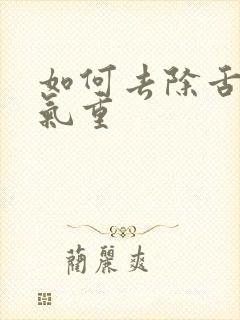 如何去除舌
氣重
蘭麗爽